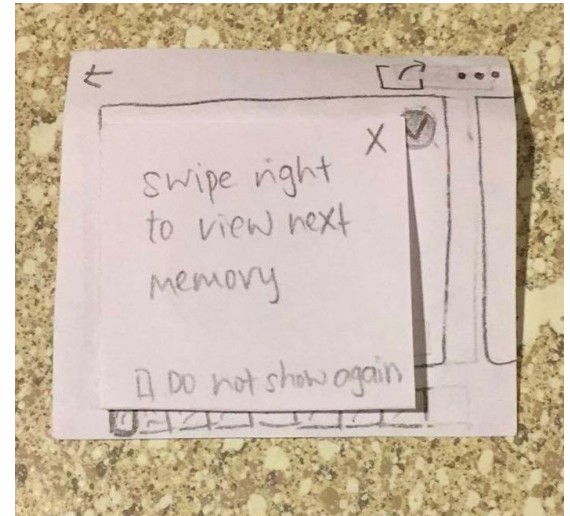 X
swipe right
to view next
memory
Do not show again